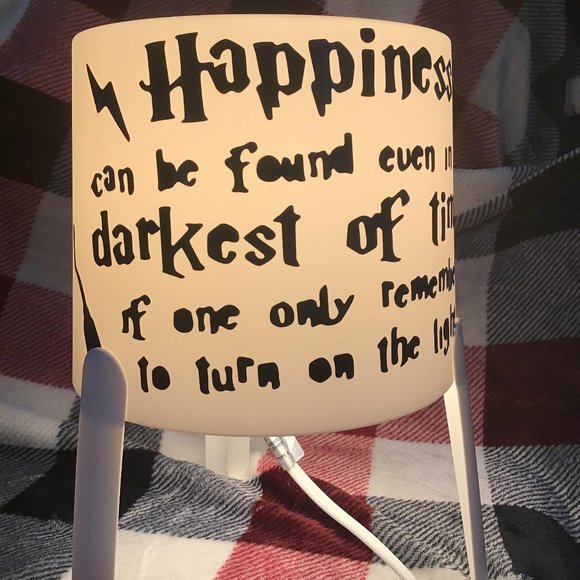 Happiness
can be found even in
darkest of tim
if one only remembe
to turn on the light